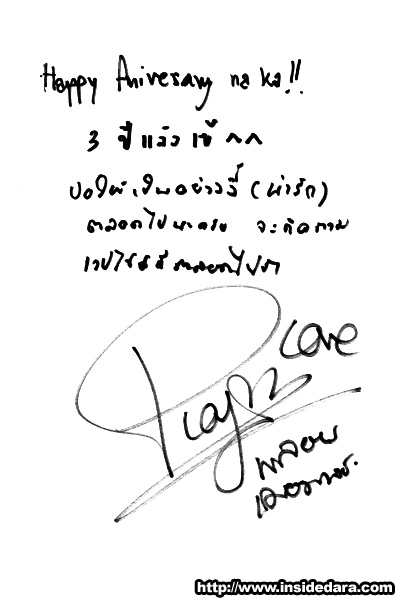 Happy Aniversary na ka!!
3 ปีแล้ว เย้ ^^
ขอให้เป็นอย่างนี้ (น่ารัก)
ตลอดไปนะครับ จะติดตาม
เวปไซต์นี้ตลอดไปค่า
Love
Ploy
พลอย
เฌอมาลย์
http://www.insidedara.com